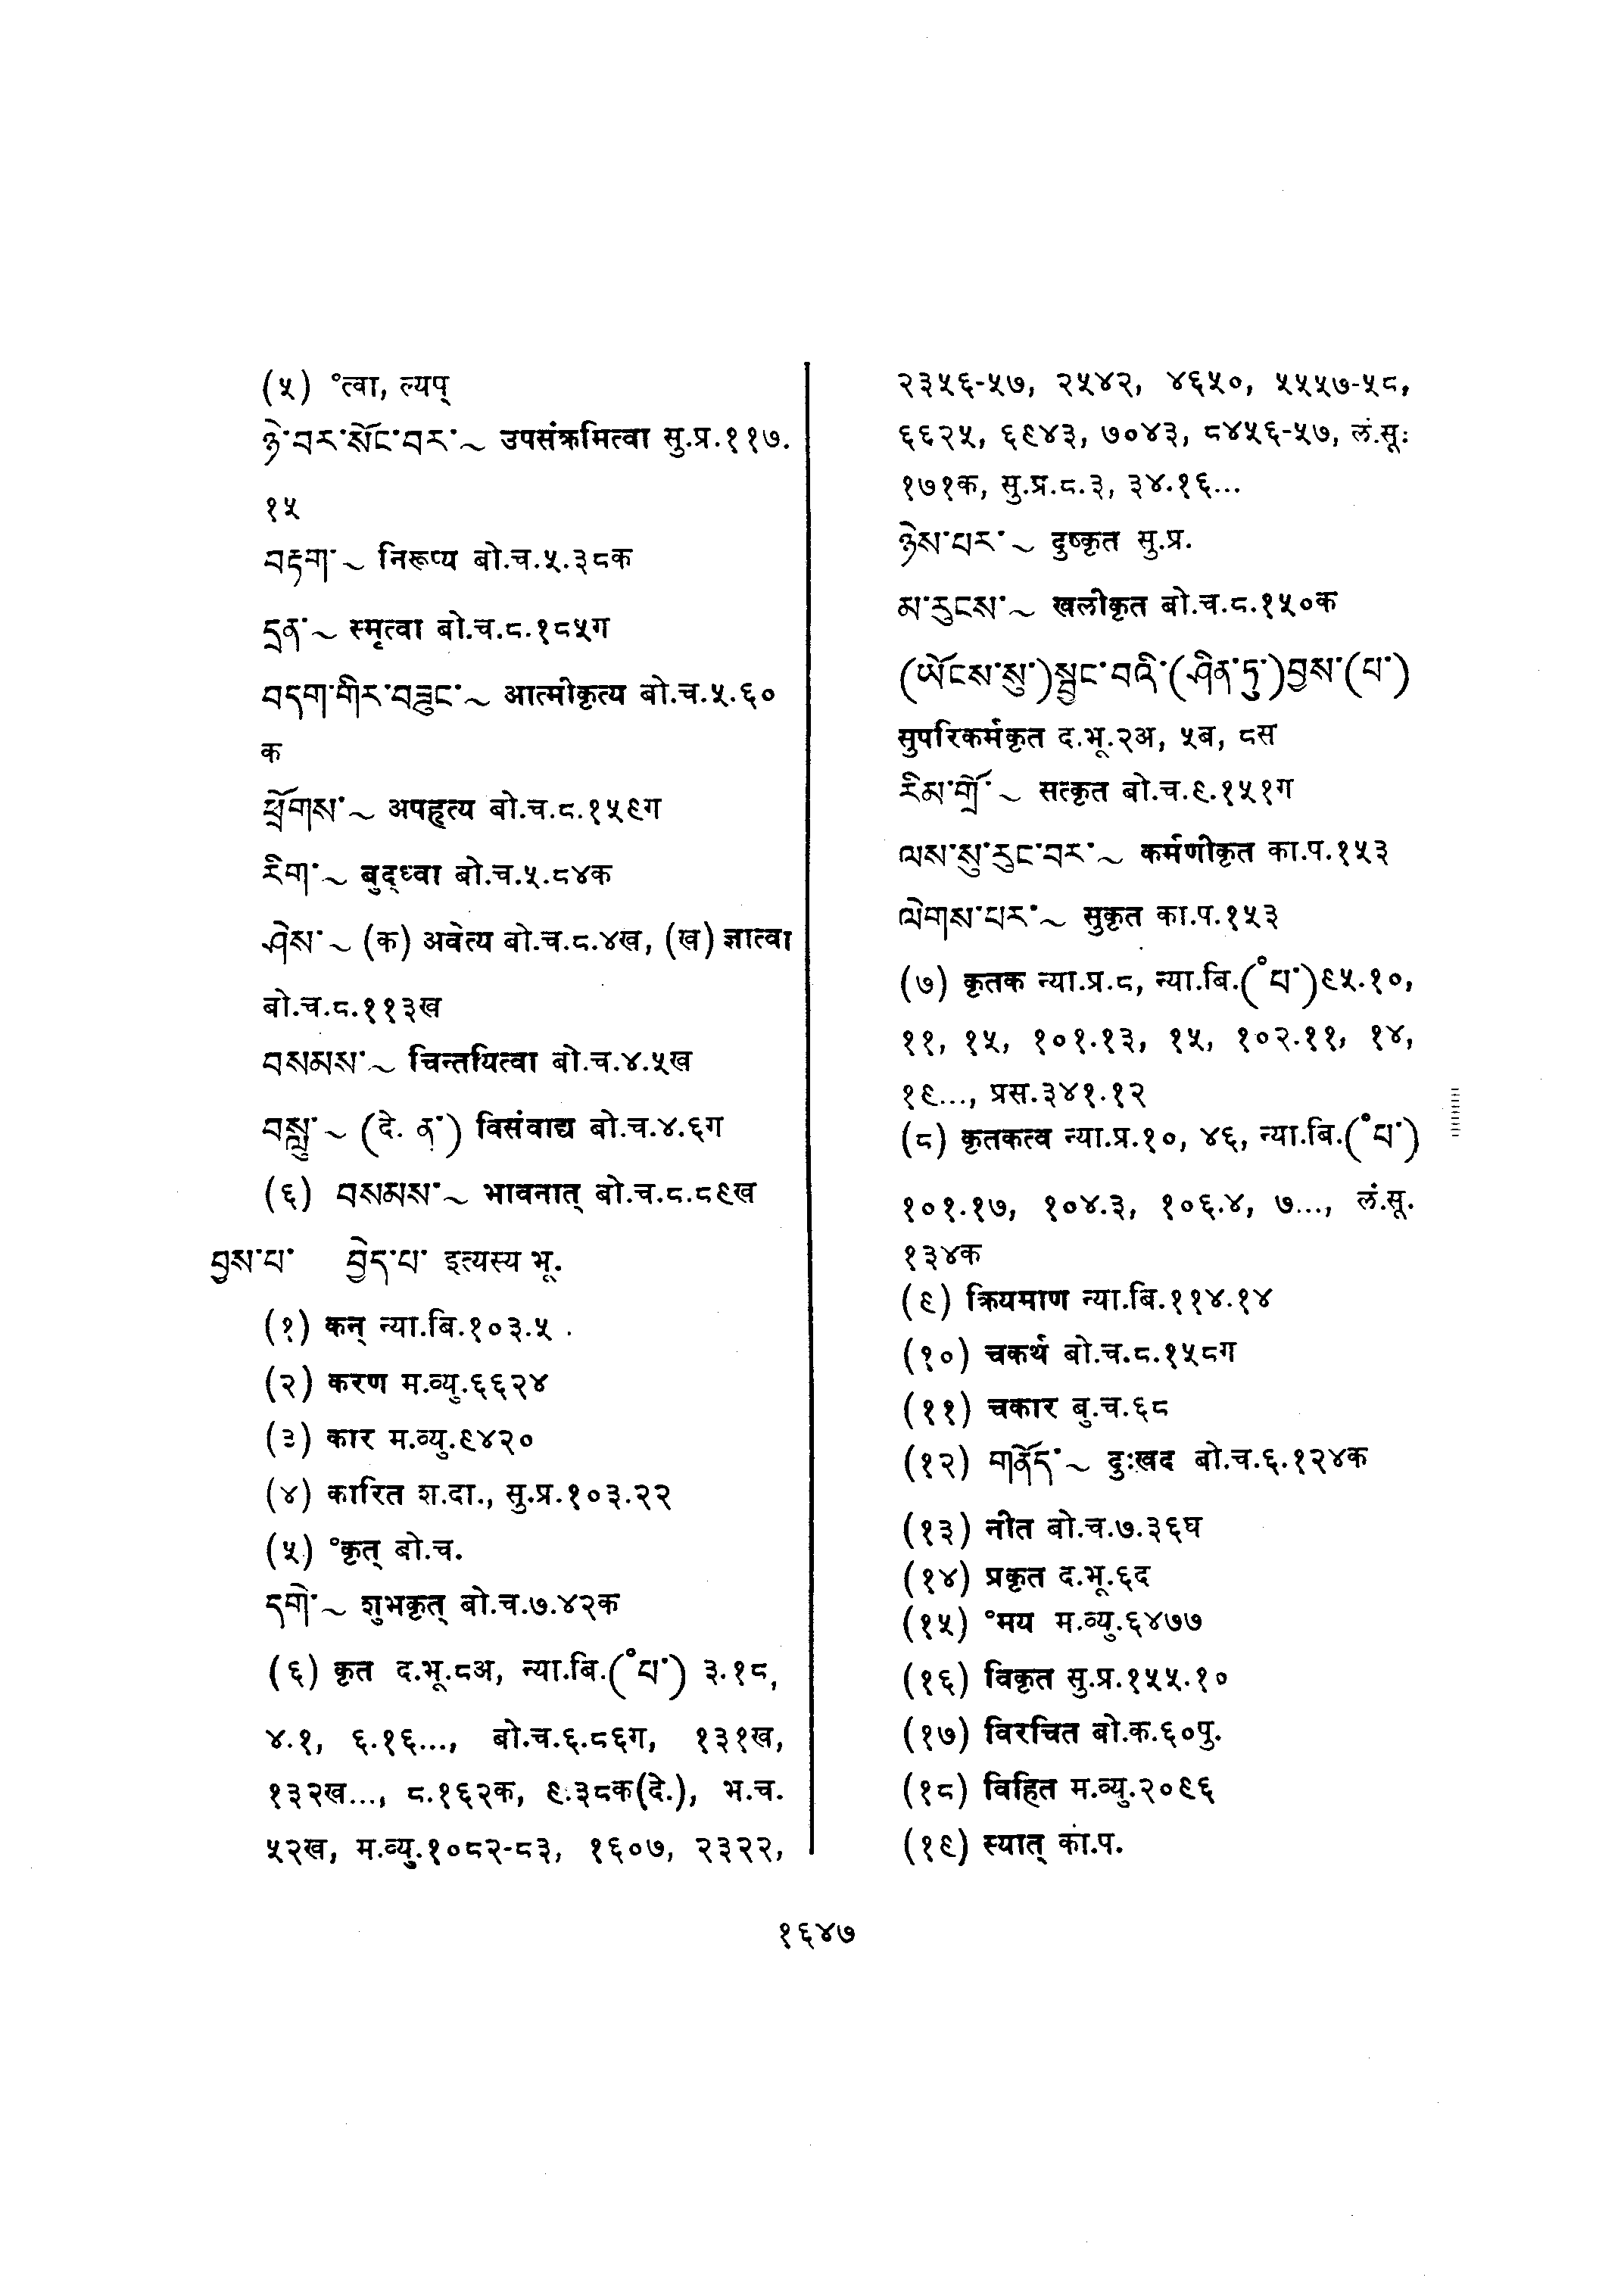 (५) °त्वा, ल्यप्
ཉེ་བར་སོང་བར་~ उपसंक्रमित्वा सु.प्र.११७.
१५
བརྟག་~ निरूप्य बो.च.५.३८क
དྲན་~ स्मृत्वा बो.च.८.१८५ग
བདག་གིར་བཟུང་~ आत्मीकृत्य बो.च.५.६०
क
ཕྲོགས་~ अपहृत्य बो.च.८.१५९ग
རིག་~ बुद्ध्वा बो.च.५.८४क
ཤེས་~ (क) अवेत्य बो.च.८.४ख, (ख) ज्ञात्वा
बो.च.८.११३ख
བསམས་~ चिन्तयित्वा बो.च.४.५ख
བསླུ་~ (दे. ན་) विसंवाद्य बो.च.४.६ग
(६) བསམས་~ भावनात् बो.च.८.८९ख
བྱས་པ་ བྱེད་པ་ इत्यस्य भू.
(१) कन् न्या.बि.१०३.५
(२) करण म.व्यु.६६२४
(३) कार म.व्यु.९४२०
(४) कारित श.दा., सु.प्र.१०३.२२
(५) °कृत् बो.च.
དགེ་~ शुभकृत् बो.च.७.४२क
(६) कृत द.भू.८अ, न्या.बि.(°པ་) ३.१८,
४.१, ६.१६..., बो.च.६.८६ग, १३१ख,
१३२ख..., ८.१६२क, ९.३८क(दे.), भ.च.
५२ख, म.व्यु.१०८२-८३, १६०७, २३२२,
२३५६-५७, २५४२, ४६५०, ५५५७-५८,
६६२५, ६९४३, ७०४३, ८४५६-५७, लं.सू.
१७१क, सु.प्र.८.३, ३४.१६...
ཉེས་པར་~ दुष्कृत सु.प्र.
མ་རུངས་~ खलीकृत बो.च.८.१५०क
(ཡོངས་སུ་)སྦྱང་བའི་(ཤིན་ཏུ་)བྱས་(པ་)
सुपरिकर्मकृत द.भू.२अ, ५ब, ८स
རིམ་གྲོ་~ सत्कृत बो.च.९.१५१ग
ལས་སུ་རུང་བར་~ कर्मणीकृत का.प.१५३
ལེགས་པར་~ सुकृत का.प.१५३
(७) कृतक न्या.प्र.८, न्या.बि.(°པ་)९५.१०,
११, १५, १०१.१३, १५, १०२.११, १४,
१९..., प्रस.३४१.१२
(८) कृतकत्व न्या.प्र.१०, ४६, न्या.बि.(°པ་)
१०१.१७, १०४.३, १०६.४, ७..., लं.सू.
१३४क
(९) क्रियमाण न्या.बि.११४.१४
(१०) चकर्थ बो.च.८.१५८ग
(११) चकार बु.च.६८
(१२) གནོད་~ दुःखद बो.च.६.१२४क
(१३) नीत बो.च.७.३६घ
(१४) प्रकृत द.भू.६द
(१५) °मय म.व्यु.६४७७
(१६) विकृत सु.प्र.१५५.१०
(१७) विरचित बो.क.६०पु.
(१८) विहित म.व्यु.२०९६
(१९) स्यात् का.प.
१६४७